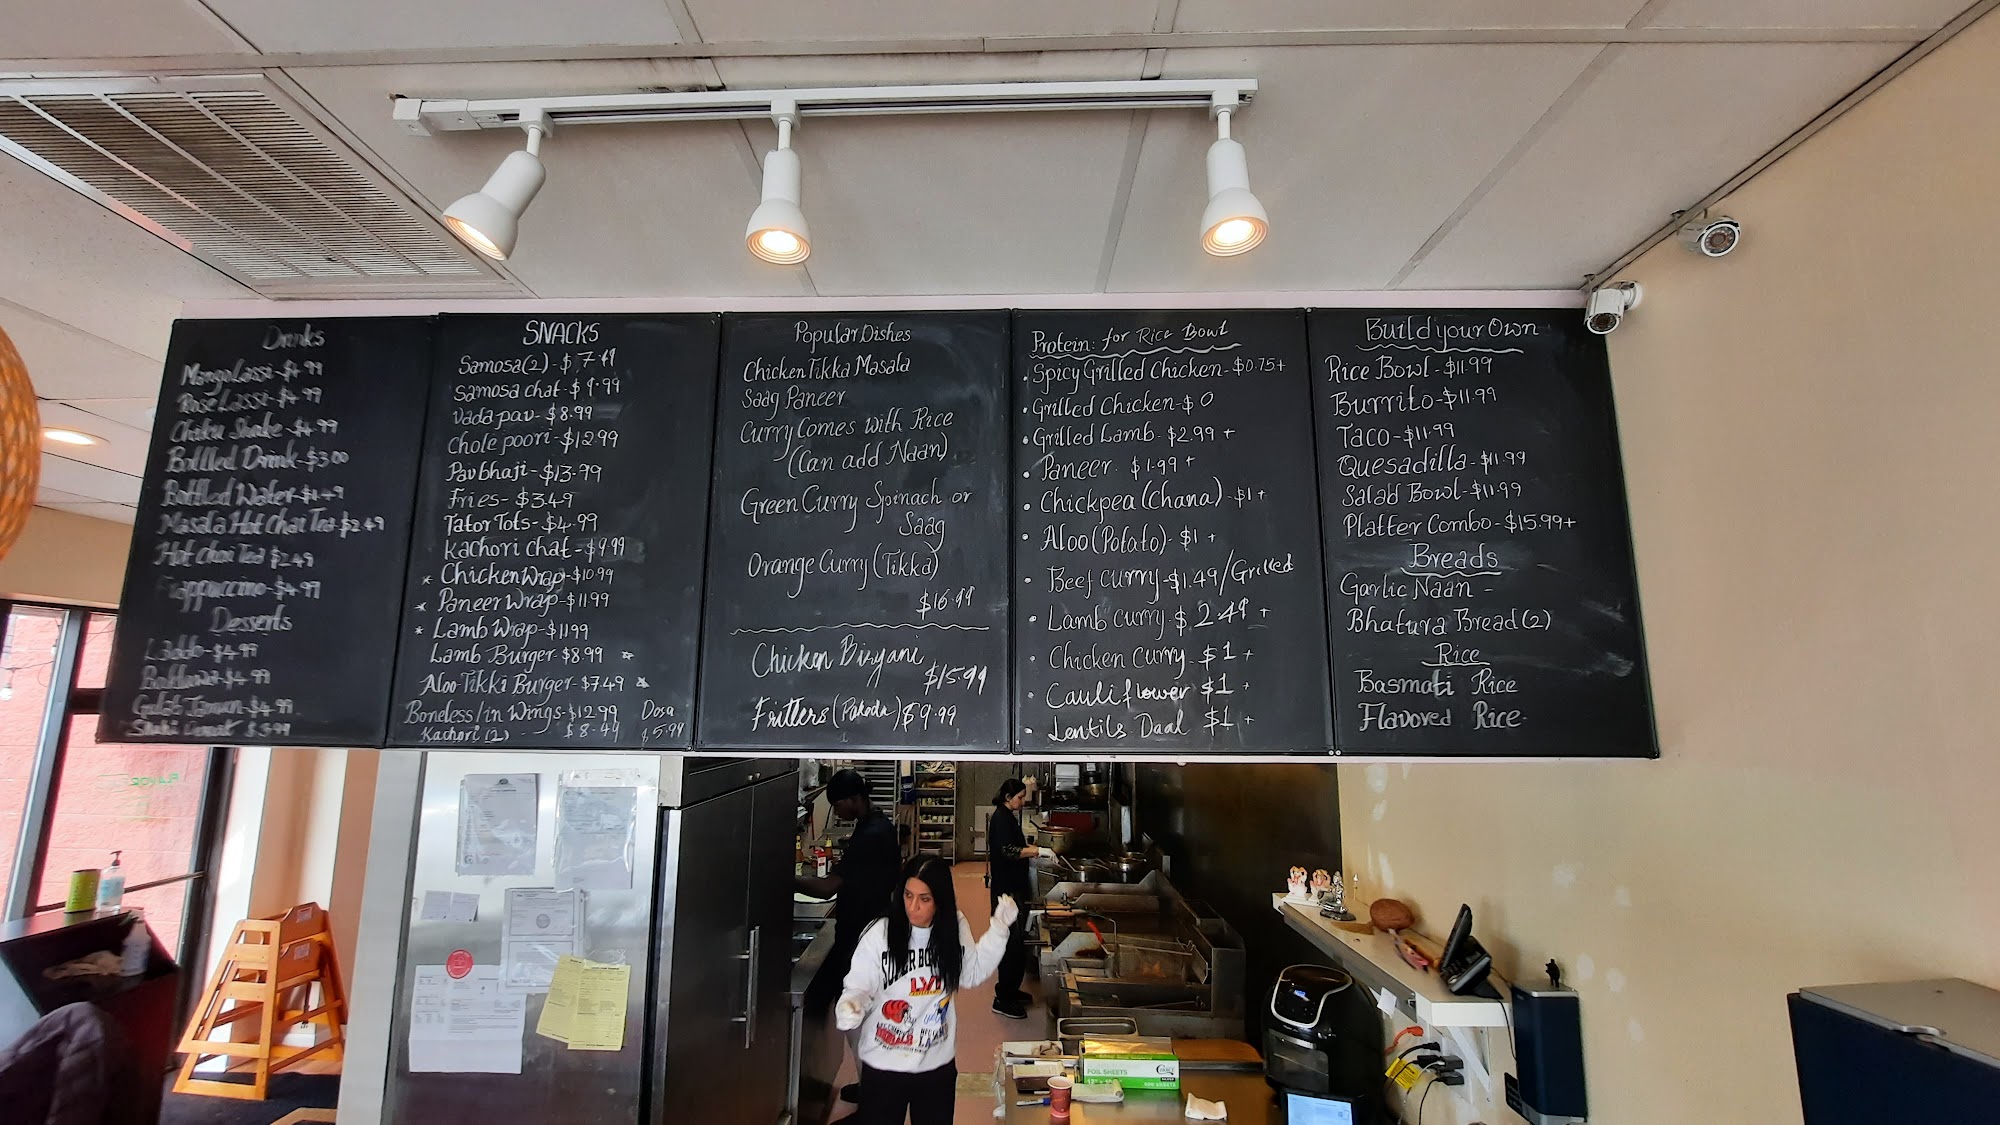 Drinks
Mango Lassi - $4.99
Rose Lassi - $4.99
Chiku Shake - $4.99
Bottled Drink - $3.00
Bottled Water - $1.49
Masala Hot Chai Tea - $2.49
Hot chai Tea $2.49
Cappuccino - $4.99
Desserts
Laddo - $4.99
Baklava - $4.99
Gulab Jamun - $4.99
Shahi $5.99
SNACKS
Samosa(2) - $7.49
Samosa chat - $9.99
Vada pav - $8.99
Chole poori - $12.99
Pavbhaji - $13.99
Fries - $3.49
Tator Tots - $4.99
Kachori chat - $9.99
* Chicken Wrap - $10.99
* Paneer Wrap - $11.99
* Lamb Wrap - $11.99
Lamb Burger - $8.99 *
Aloo Tikki Burger - $7.49 *
Boneless/in Wings - $12.99 Dosa
Kachori (2) - $8.49 $5.99
Popular Dishes
Chicken Tikka Masala
Saag Paneer
Curry Comes with Rice
(Can add Naan)
Green Curry Spinach or
Saag
Orange Curry (Tikka)
$16.99
Chicken Biryani
$15.99
Fritters (Pakoda) $9.99
Protein: for Rice Bowl
• Spicy Grilled Chicken - $0.75+
• Grilled Chicken - $0
• Grilled Lamb - $2.99 +
• Paneer - $1.99 +
• Chickpea (Chana) - $1 +
• Aloo (Potato) - $1 +
• Beef curry - $1.49/Grilled
• Lamb curry - $2.49 +
• Chicken curry - $1 +
• Cauliflower $1 +
• Lentils Daal $1 +
Build your Own
Rice Bowl - $11.99
Burrito - $11.99
Taco - $11.99
Quesadilla - $11.99
Salad Bowl - $11.99
Platter Combo - $15.99+
Breads
Garlic Naan -
Bhatura Bread (2)
Rice
Basmati Rice
Flavored Rice
SUPER BOWL
LVII
FOIL SHEETS